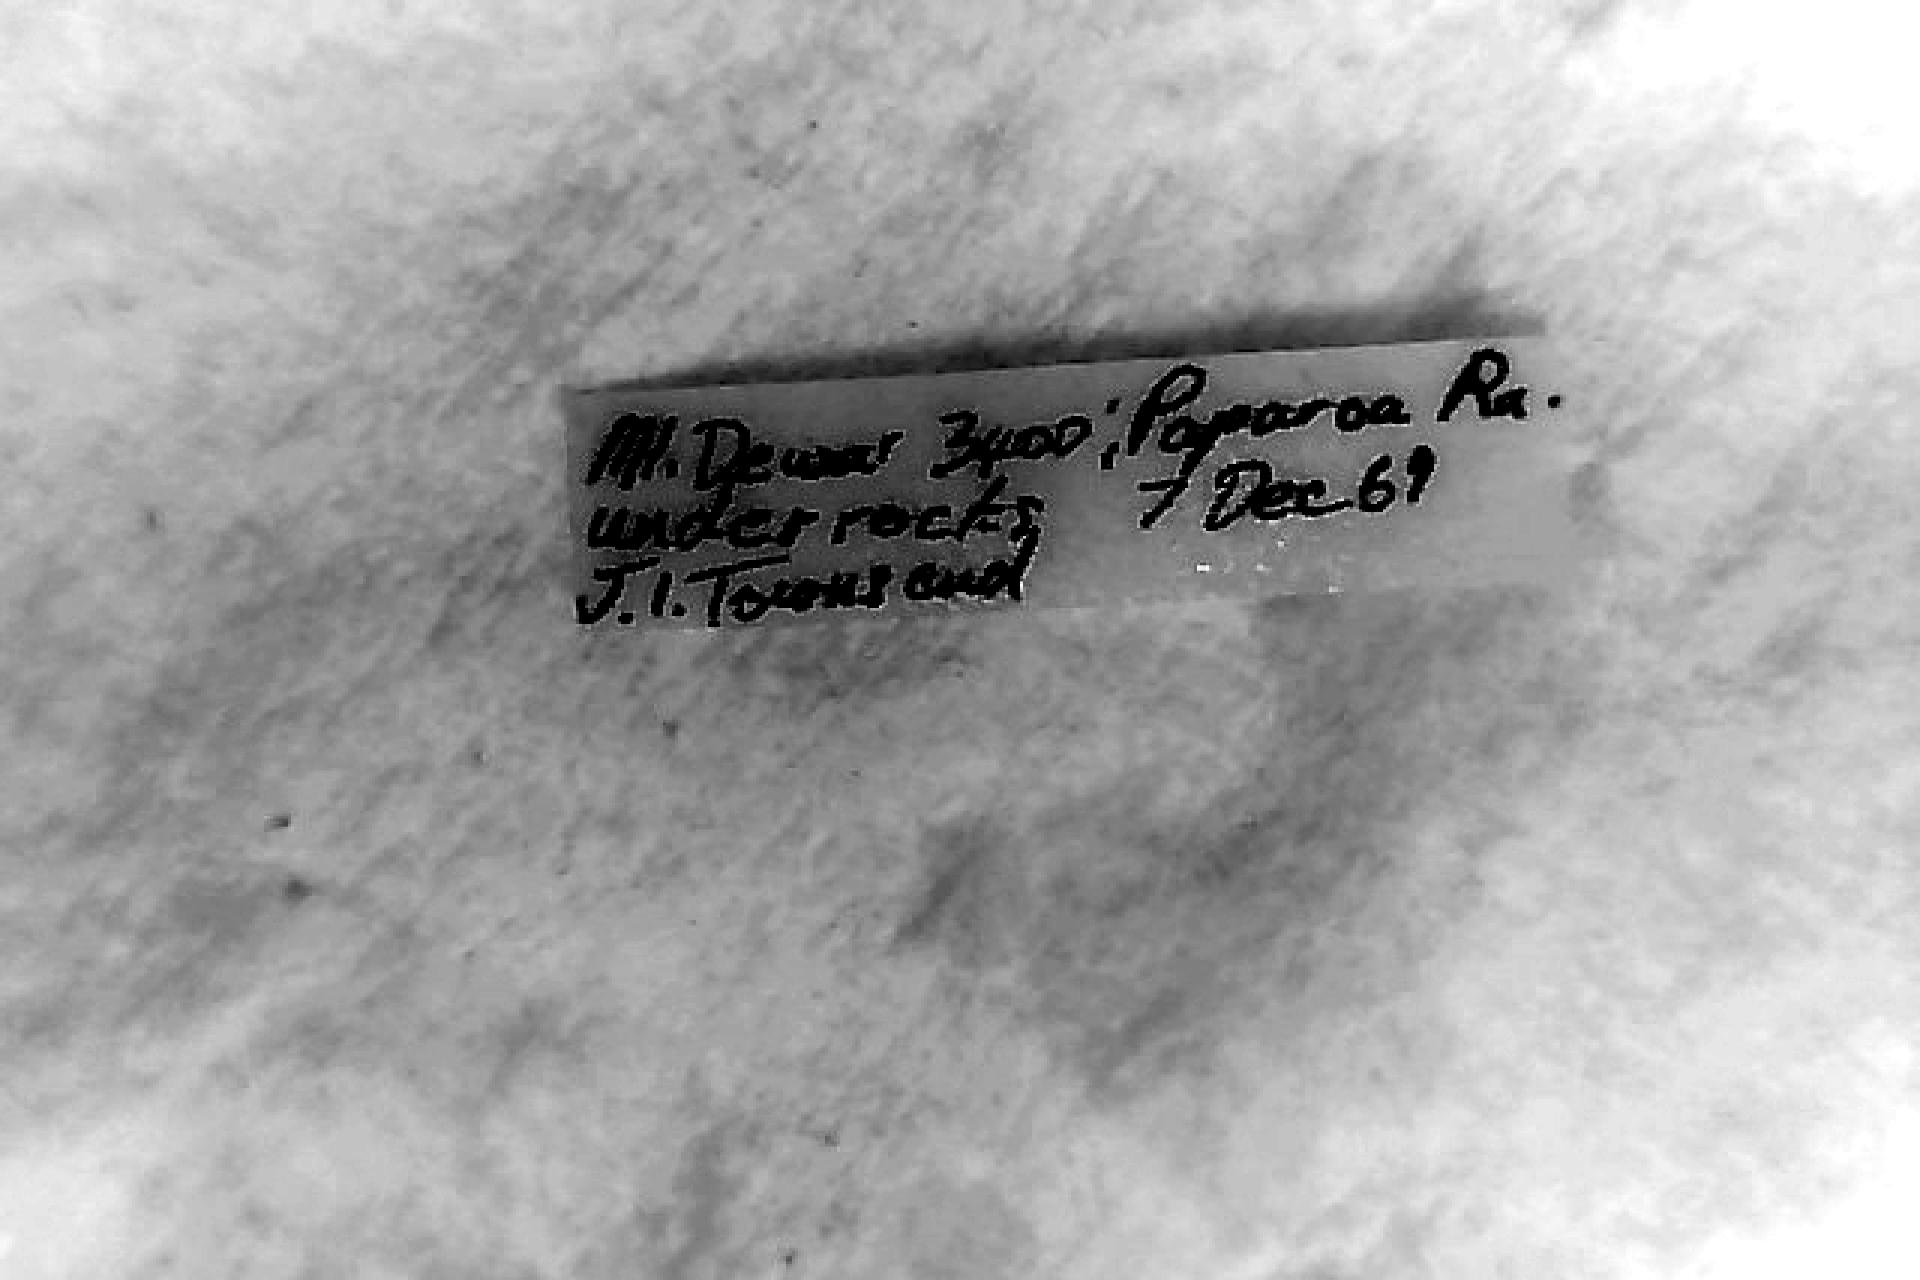 Mt. Dewar 3400'; Paparoa Ra.
under rocks 7 Dec 69
J.I. Townsend